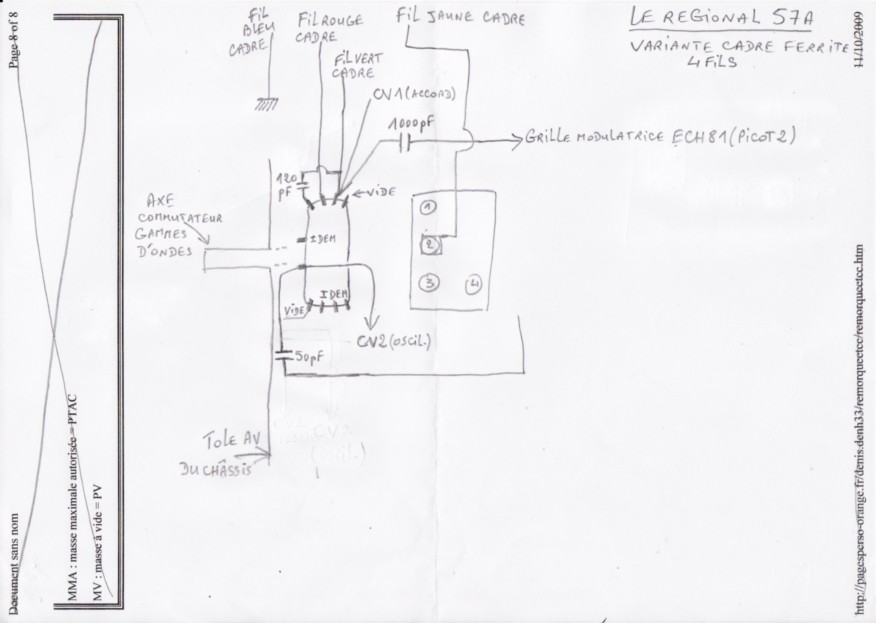 LE REGIONAL 57A
VARIANTE CADRE FERRITE
4 FILS
FIL
BLEU
CADRE
FIL ROUGE
CADRE
FIL JAUNE CADRE
FIL VERT
CADRE
CV1 (ACCORD)
1000pF
GRILLE MODULATRICE ECH81 (PICOT 2)
120
pF
VIDE
AXE
COMMUTATEUR
GAMMES
D'ONDES
IDEM
IDEM
VIDE
1
2
3
4
CV2 (OSCIL.)
50pF
TOLE AV
DU CHÂSSIS
Page 8 of 8
Document sans nom
MMA : masse maximale autorisée = PTAC
MV : masse à vide = PV
11/10/2009
http://pagesperso-orange.fr/denis.denh33/remorqueetcc/remorqueetcc.htm